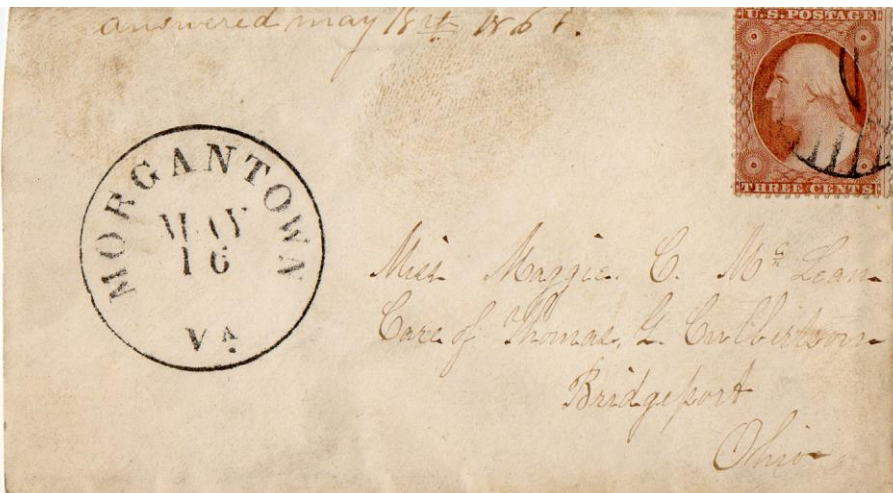 answered may 18th 1861.
U.S. POSTAGE
THREE CENTS
MORGANTOWN
MAY
16
VA
Miss Maggie. C. Mc Lean
Care of Thomas. L. Culbertson
Bridgeport
Ohio